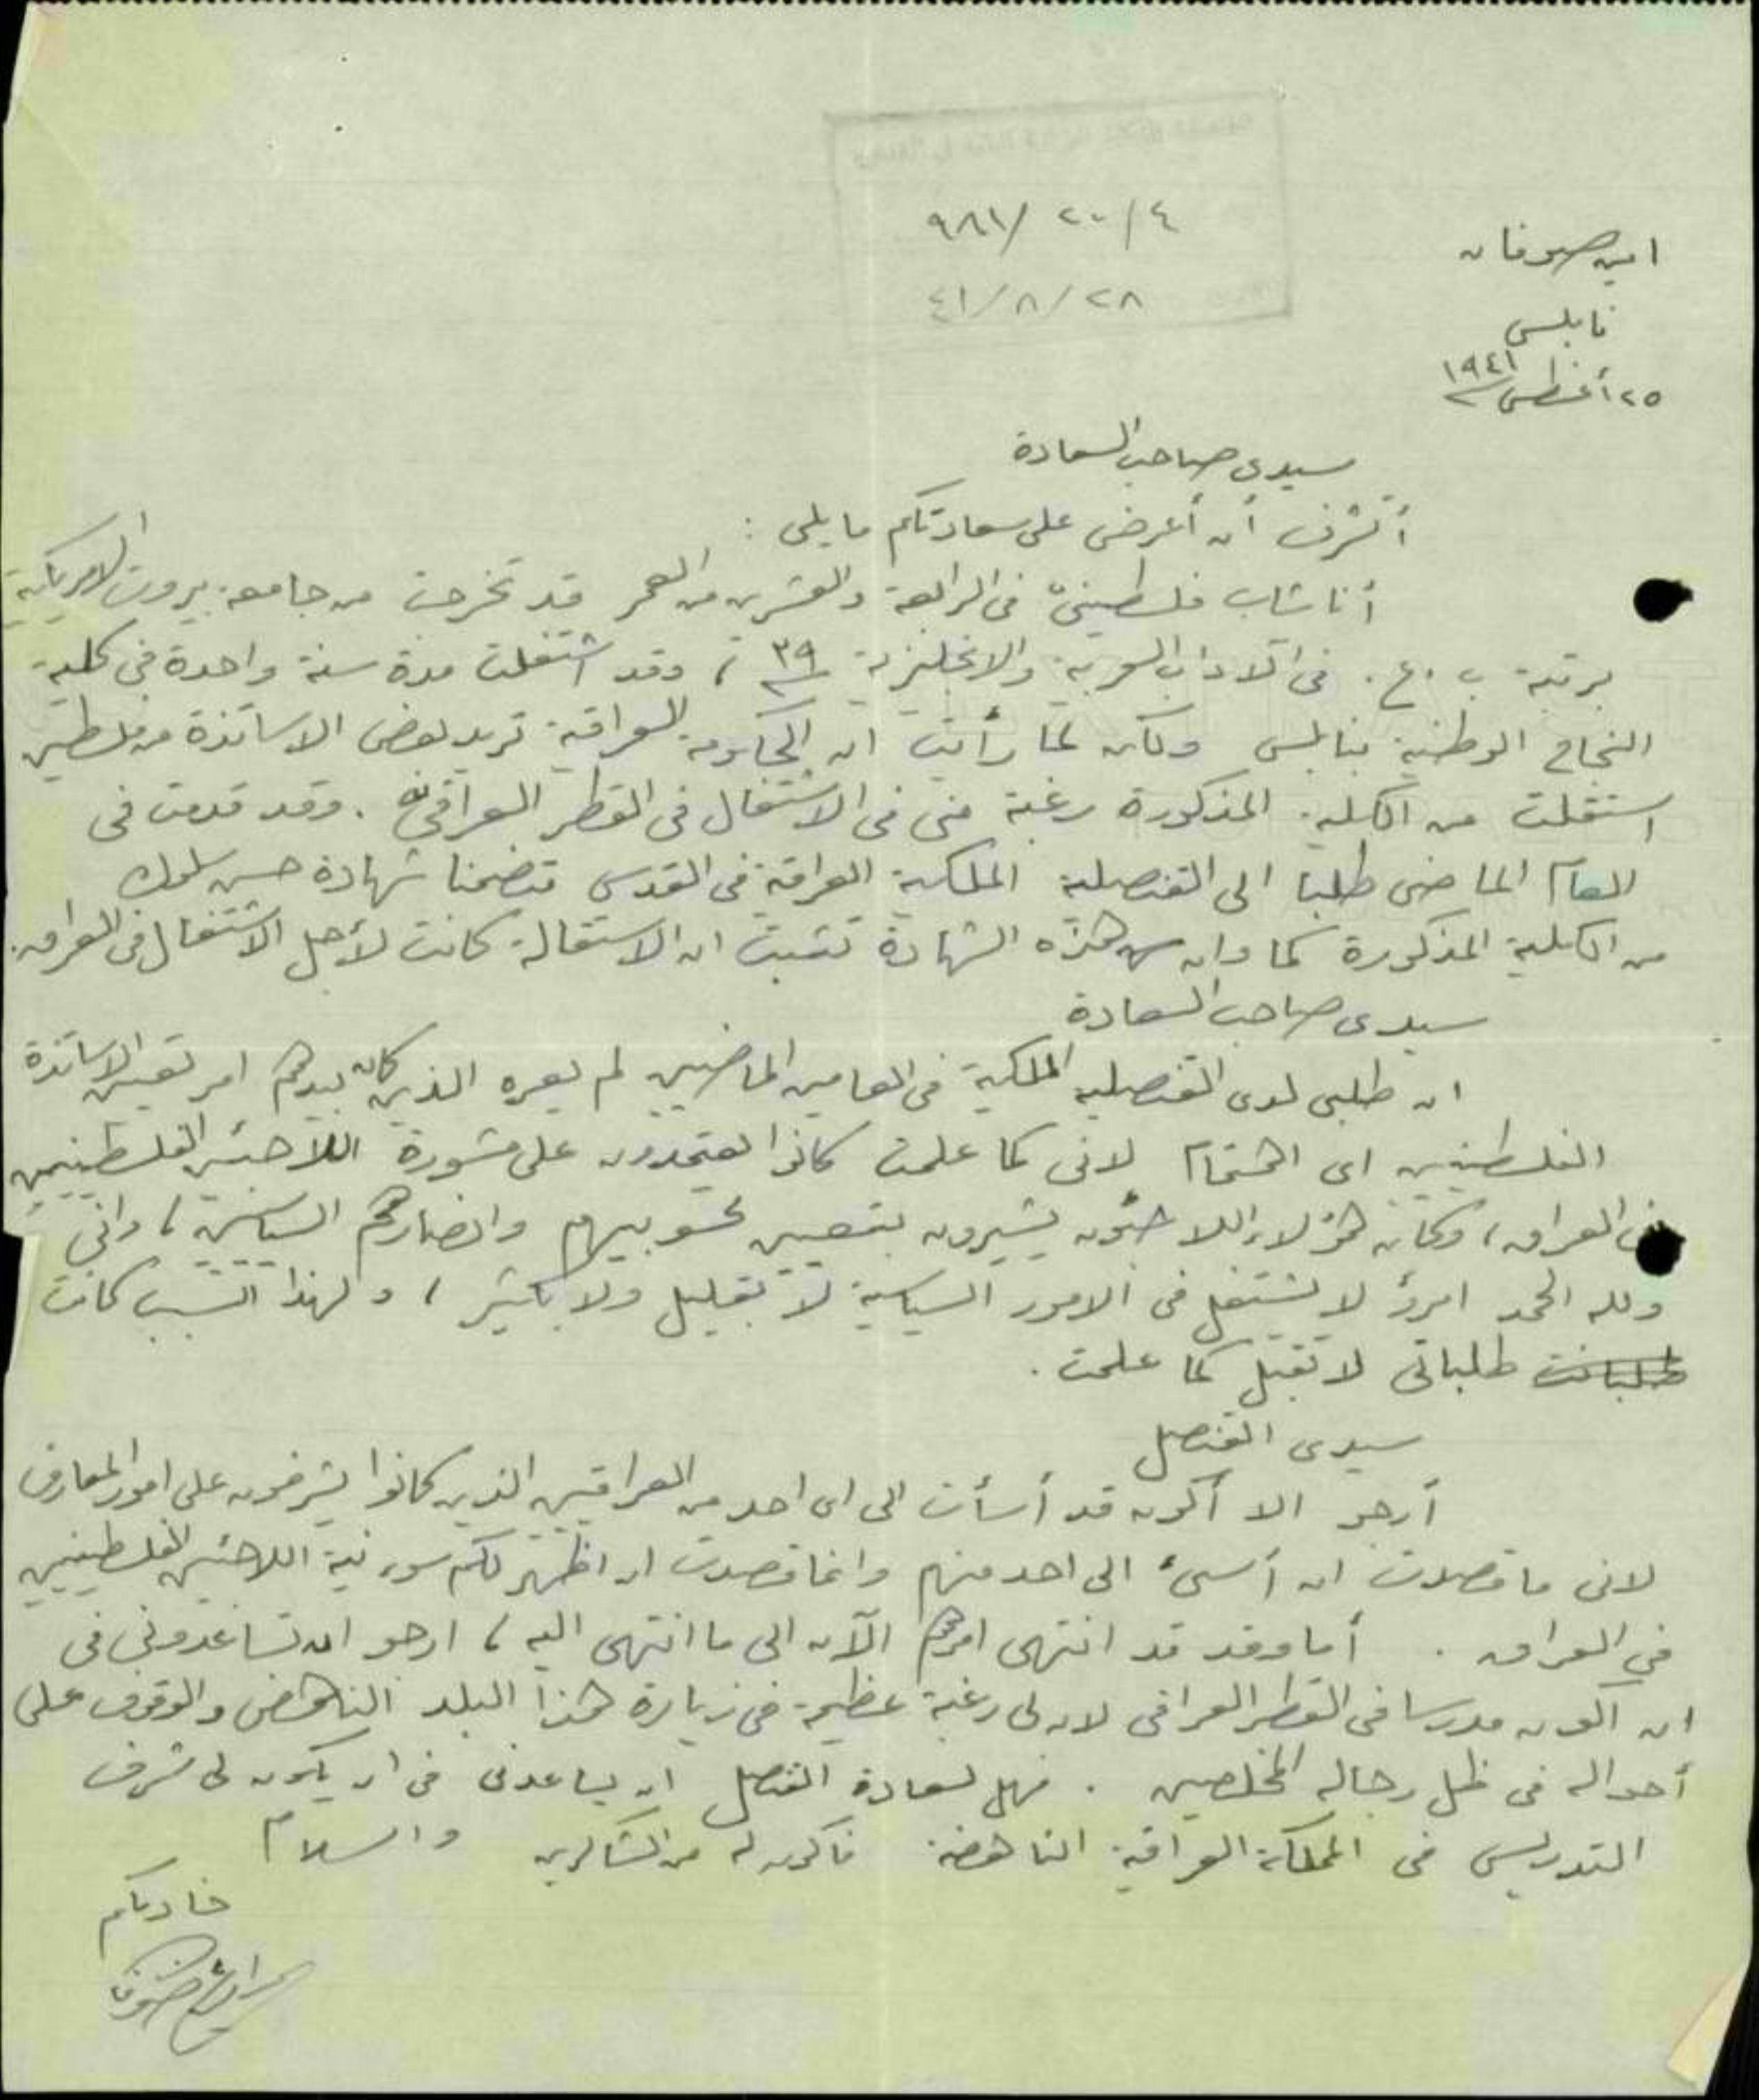 ٩٨١/ ٢٠/٤
٤١/٨/٢٨
امين صوفان
نابلس
٢٥ أغسطس ١٩٤١
سيدى صاحب السعادة
أتشرف أن أعرض على سعادتكم ما يلى :
أنا شاب فلسطينى فى الرابعة والعشرين من العمر قد تخرجت من جامعة بيروت الامريكية
برتبة ب . ع . فى الاداب العربية والانجليزية ٣٩ ، وقد اشتغلت مدة سنة واحدة فى كلية
النجاح الوطنية بنابلس ولكن لما رأيت ان الحكومة العراقية تريد بعض الاساتذة من فلسطين
استقلت من الكلية المذكورة رغبة منى فى الاشتغال فى القطر العراقى . وقد قدمت فى
العام الماضى طلبا الى القنصلية الملكية العراقية فى القدس متضمنا شهادة حسن سلوك
من الكلية المذكورة كما وان هذه الشهادة تثبت ان الاستقالة كانت لأجل الاشتغال فى العراق .
سيدى صاحب السعادة
ان طلبى لدى القنصلية الملكية فى العامين الماضيين لم يعره الذين كان بيدهم امر تعيين الاساتذة
الفلسطينيين اى اهتمام لانى كما علمت كانوا يعتمدون على مشورة اللاجئين الفلسطينيين
فى العراق ، وكان هؤلاء اللاجئون يشيرون بتعيين محسوبيهم وانصارهم السياسيين ، وانى
ولله الحمد امرؤ لا يشتغل فى الامور السياسية لا بقليل ولا بكثير ، ولهذا السبب كانت
طلباتى لا تقبل كما علمت .
سيدى القنصل
أرجو الا أكون قد أسأت الى اى احد من العراقيين الذين كانوا يشرفون على امور المعارف
لانى ما قصدت ان أسىء الى احد منهم وانما قصدت ان اظهر لكم سوء نية اللاجئين الفلسطينيين
في العراق . أما وقد قد انتهى امرهم الآن الى ما انتهى اليه ، ارجو ان تساعدونى فى
ان اكون مدرسا فى القطر العراقى لان لى رغبة عظيمة فى زيارة هذا البلد الناهض والوقوف على
أحواله فى ظل رجاله المخلصين . فهل لسعادة القنصل ان يساعدنى فى ان يكون لى شرف
التدريس فى المملكة العراقية الناهضة فاكون له من الشاكرين والسلام
خادمكم